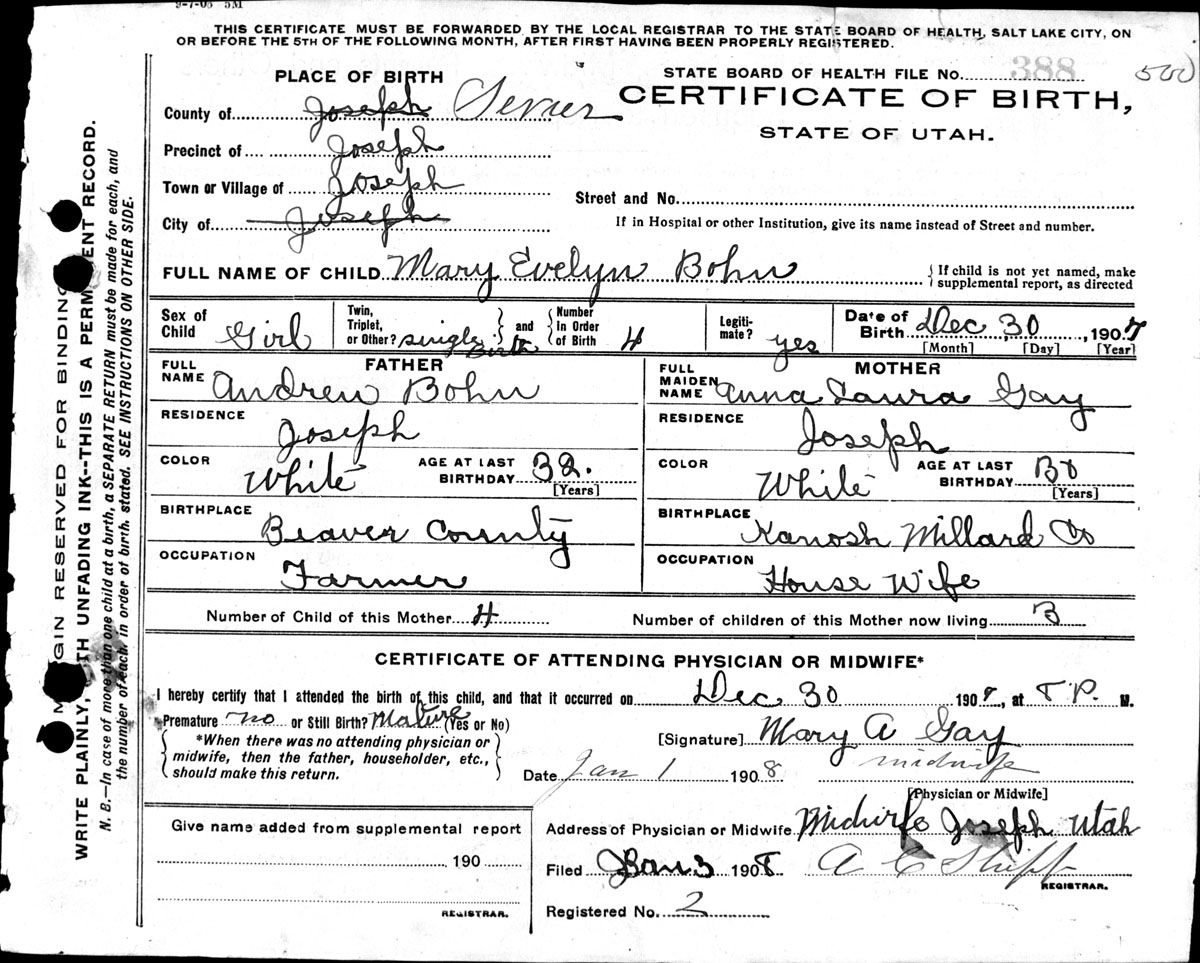 9-7-05 5M
THIS CERTIFICATE MUST BE FORWARDED BY THE LOCAL REGISTRAR TO THE STATE BOARD OF HEALTH, SALT LAKE CITY, ON
OR BEFORE THE 5TH OF THE FOLLOWING MONTH, AFTER FIRST HAVING BEEN PROPERLY REGISTERED.
PLACE OF BIRTH
STATE BOARD OF HEALTH FILE No. 388 500
County of Joseph Sevier
CERTIFICATE OF BIRTH,
STATE OF UTAH.
Precinct of Joseph
Town or Village of Joseph
Street and No.
City of Joseph
If in Hospital or other Institution, give its name instead of Street and number.
FULL NAME OF CHILD Mary Evelyn Bohn
{ If child is not yet named, make supplemental report, as directed
Sex of Child Girl
Twin, Triplet, or Other? single Birth } and { Number In Order of Birth 4
Legiti-mate? yes
Date of Birth Dec, 30, 1907
[Month] [Day] [Year]
FATHER
MOTHER
FULL NAME Andrew Bohn
FULL MAIDEN NAME Anna Laura Gay
RESIDENCE Joseph
RESIDENCE Joseph
COLOR White AGE AT LAST BIRTHDAY 32. [Years]
COLOR White AGE AT LAST BIRTHDAY 30 [Years]
BIRTHPLACE Beaver County
BIRTHPLACE Kanosh Millard Co
OCCUPATION Farmer
OCCUPATION House Wife
Number of Child of this Mother 4
Number of children of this Mother now living 3
CERTIFICATE OF ATTENDING PHYSICIAN OR MIDWIFE*
I hereby certify that I attended the birth of this child, and that it occurred on Dec 30 1907, at 8 P. M.
Premature no or Still Birth? Mature (Yes or No)
{ *When there was no attending physician or midwife, then the father, householder, etc., should make this return. }
[Signature] Mary A Gay
Date Jan 1 1908
midwife
[Physician or Midwife]
Give name added from supplemental report
190
REGISTRAR.
Address of Physician or Midwife Midwife Joseph Utah
Filed Jan 3 1908 A C Shipp
REGISTRAR.
Registered No. 2
MARGIN RESERVED FOR BINDING
WRITE PLAINLY, WITH UNFADING INK--THIS IS A PERMANENT RECORD.
N. B.—In case of more than one child at a birth, a SEPARATE RETURN must be made for each, and
the number of each, in order of birth, stated. SEE INSTRUCTIONS ON OTHER SIDE.